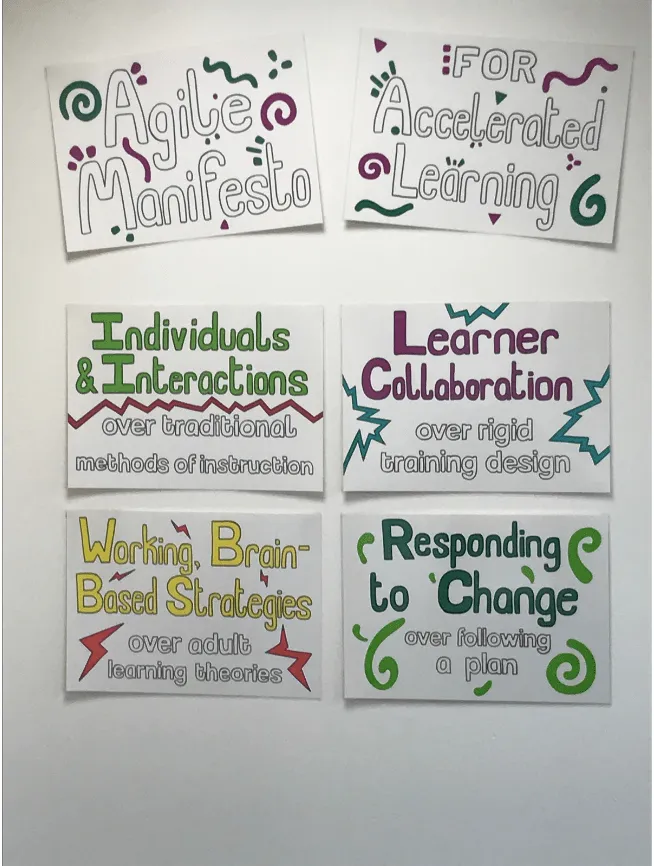 Agile
Manifesto
FOR
Accelerated
Learning
Individuals
& Interactions
over traditional
methods of instruction
Learner
Collaboration
over rigid
training design
Working, Brain-
Based Strategies
over adult
learning theories
Responding
to Change
over following
a plan